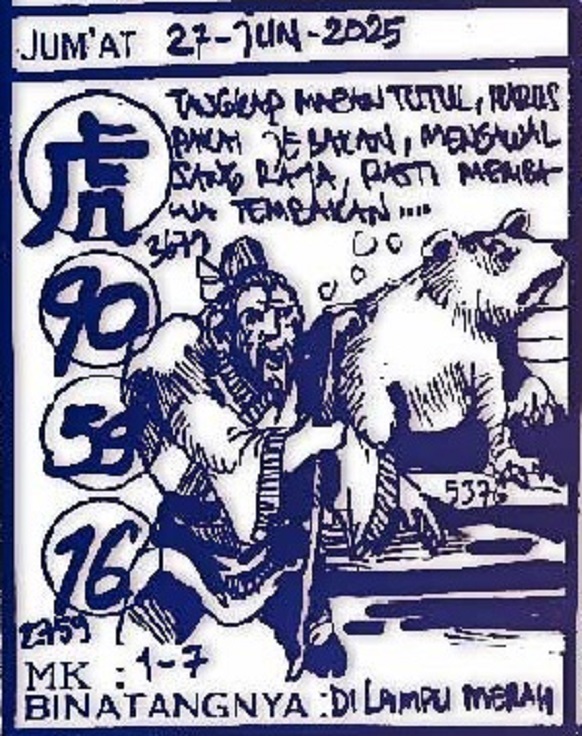 JUM'AT 27-JUN-2025
TANGKAP MACAN TUTUL, HARUS
PAKAI JEBAKAN, MENGAWAL
SANG RAJA, PASTI MEMBA-
WA TEMBAKAN ....
虎
3679
90
59
5376
16
2759
MK : 1-7
BINATANGNYA : DI LAMPU MERAH